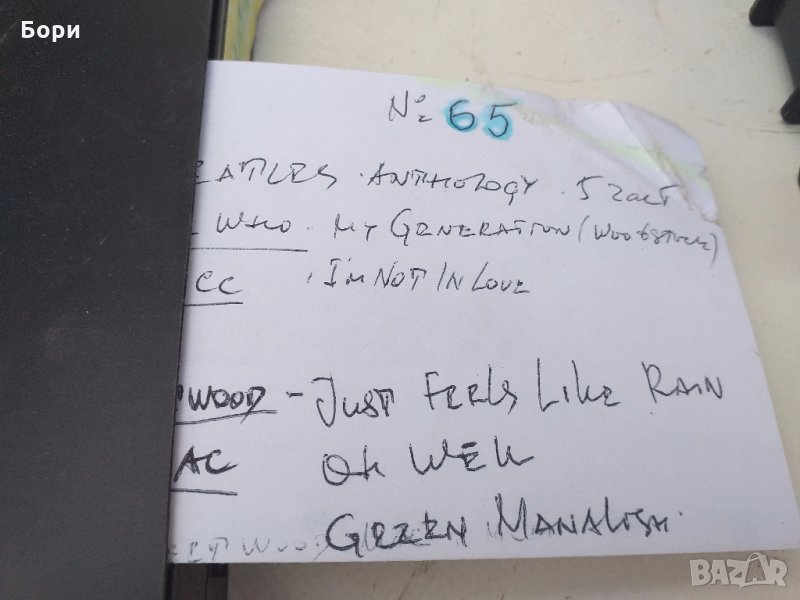 Бори
№ 65
EATLES · ANTHOLOGY · 5 част
E WHO · MY GENERATION (WOODSTOCK)
CC · I'M NOT IN LOVE
WOOD - JUST FEELS LIKE RAIN
AC OH WELL
GREEN MANALISHI
EET WOO
BAZAR